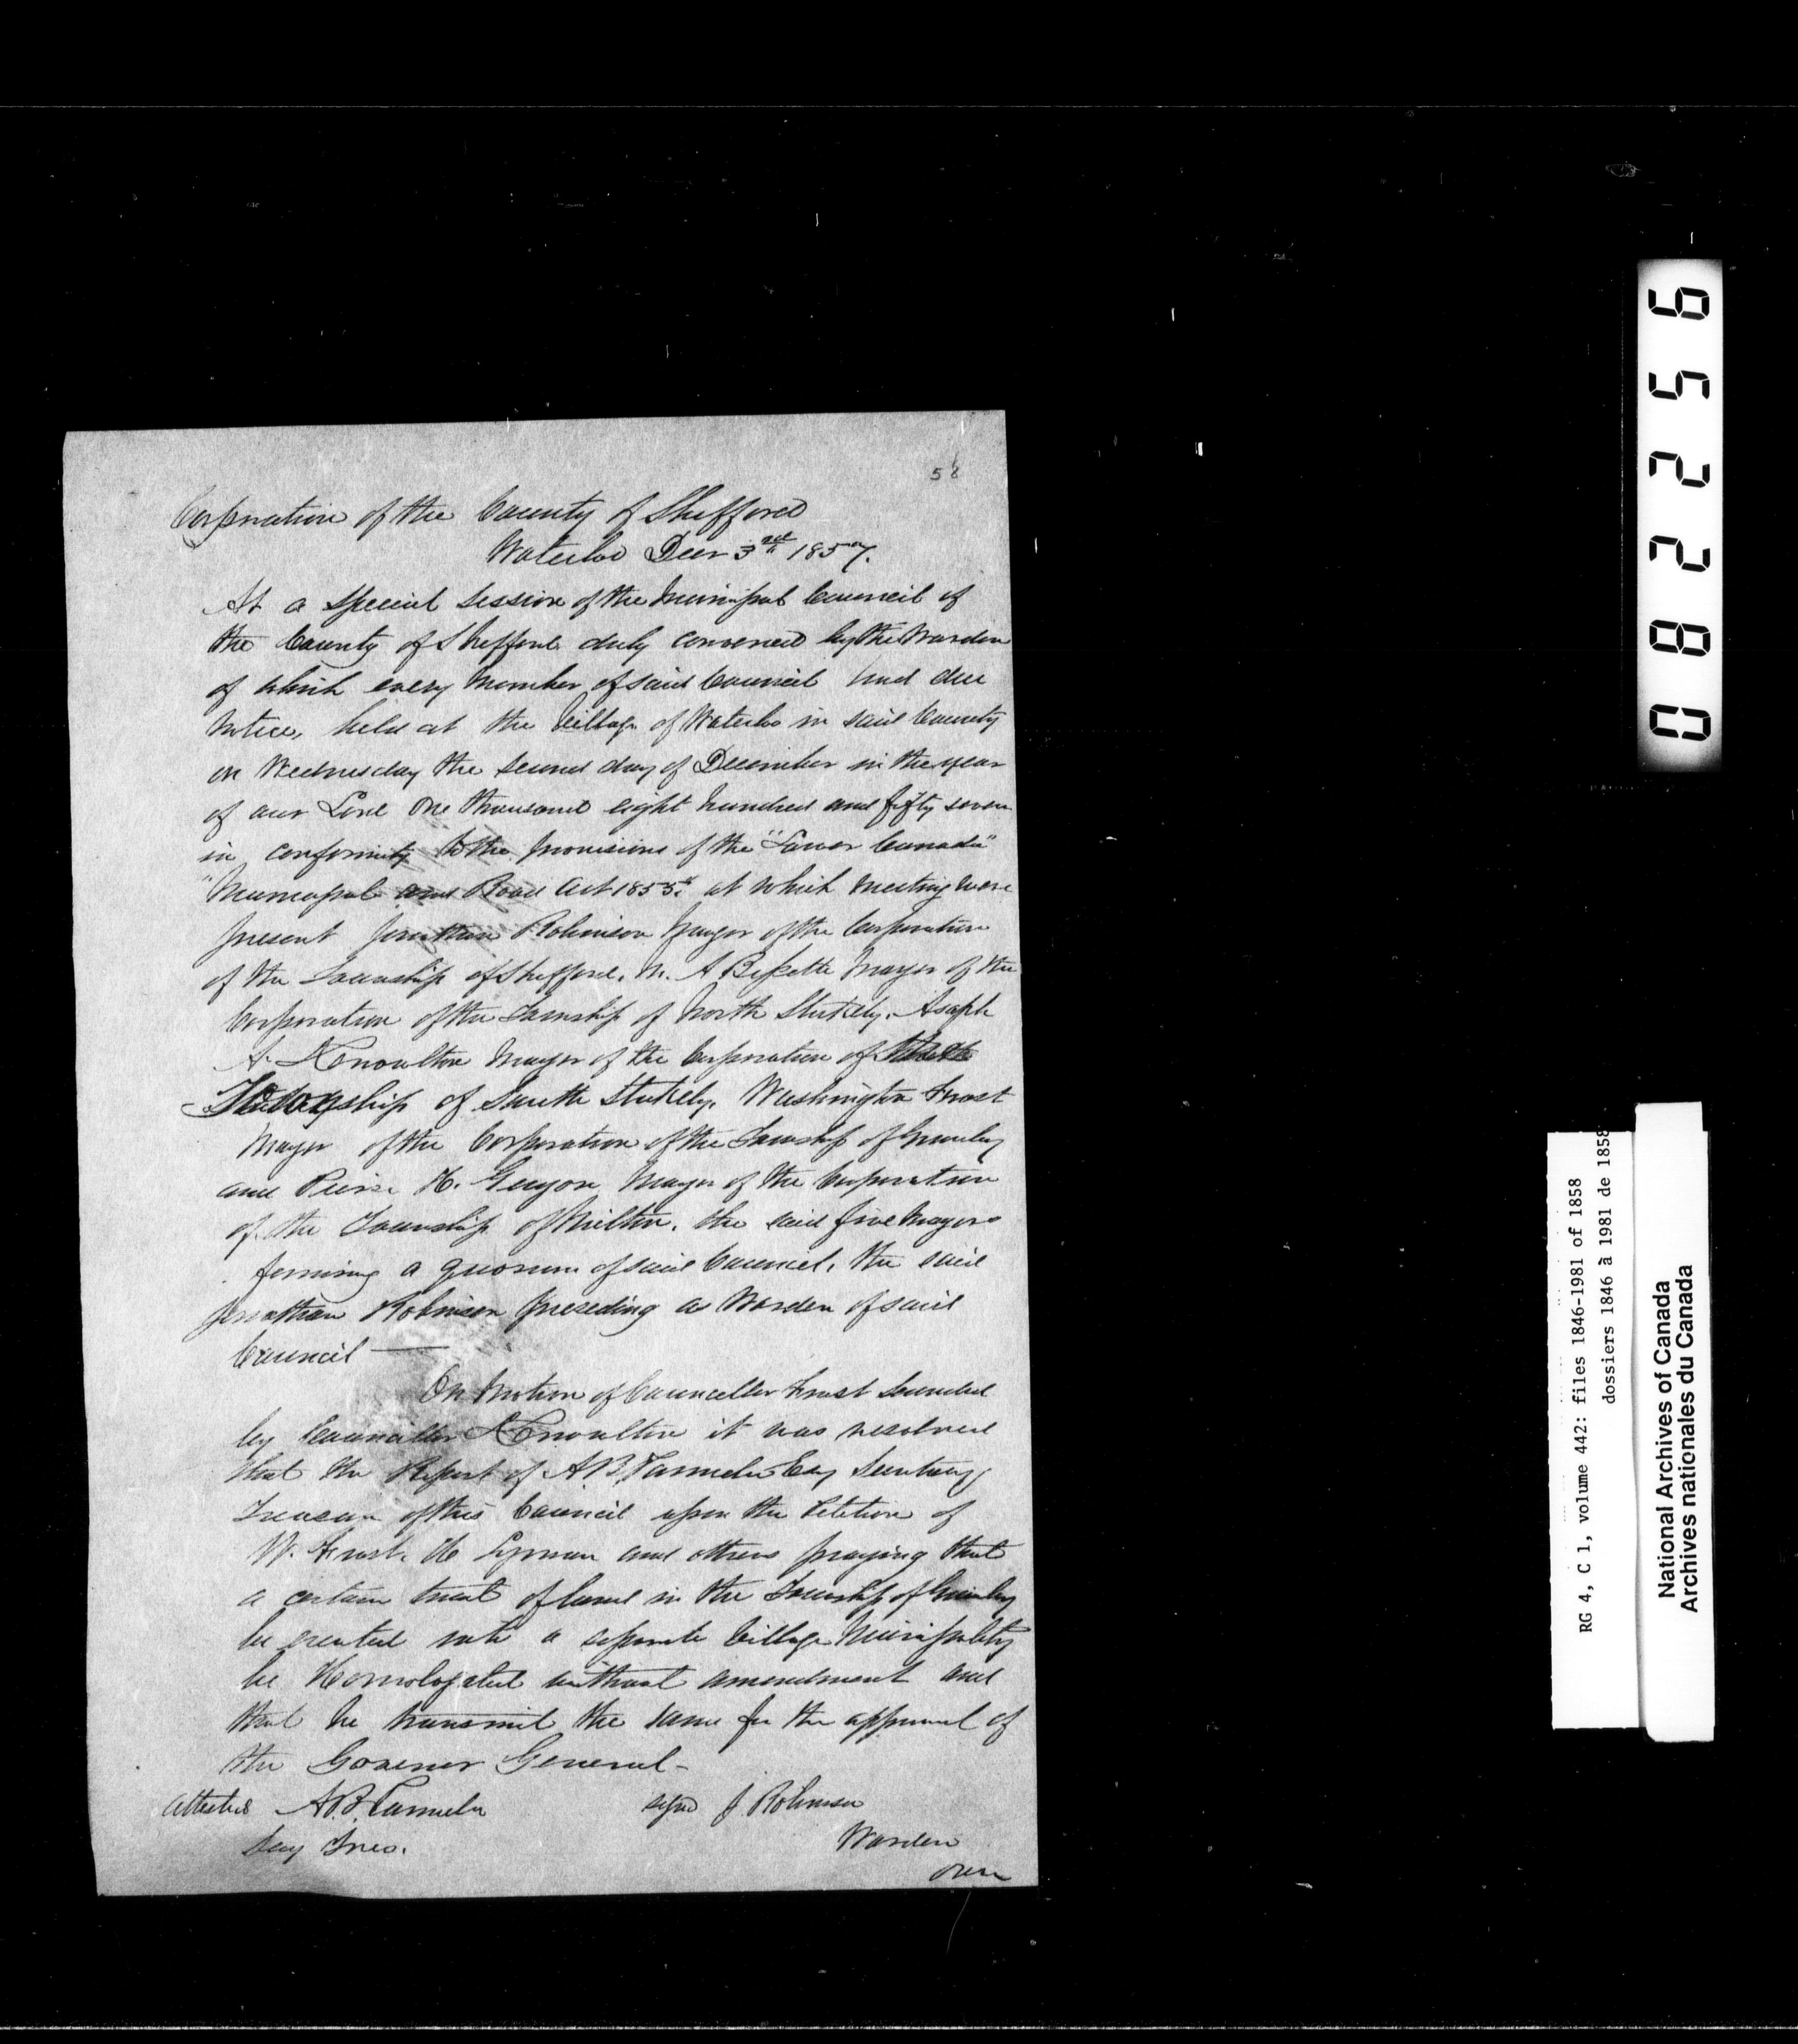 58
Corporation of the County of Shefford
Waterloo Decr 3rd 1857.
At a special session of the Municipal Council of
the County of Shefford duly convened by the Warden
of which every member of said Council had due
notice, held at the Village of Waterloo in said County
on Wednesday the second day of December in the year
of our Lord One thousand eight hundred and fifty seven
in conformity to the provisions of the "Lower Canada"
"Municipal and Road Act 1855" at which meeting were
present Jonathan Robinson Mayor of the Corporation
of the Township of Shefford, A Bessette Mayor of the
Corporation of the Township of North Stukely. Asaph
A. Knowlton Mayor of the Corporation of
Township of South Stukely. Washington Frost
Mayor of the Corporation of the Township of Granby
and Pierre H. Guyon Mayor of the Corporation
of the Township of Milton, the said five Mayors
forming a quorum of said Council, the said
Jonathan Robinson preseding as Warden of said
Council
On motion of Councellor Frost seconded
by Councillor Knowlton it was resolved
that the Report of A B Parmelee Esq Secretary
Treasurer of this Council upon the Petition of
W. Frost, H Lyman and others praying that
a certain tract of land in the Township of Granby
be erected into a separate Village Municipality
be Homologated without amendment and
that he transmit the same for the approval of
the Govenor General-
Attested A.B. Parmelee
signd J. Robinson
Secy Tres.
Warden
over
082256
RG 4, C 1, volume 442: files 1846-1981 of 1858
dossiers 1846 à 1981 de 1858
National Archives of Canada
Archives nationales du Canada